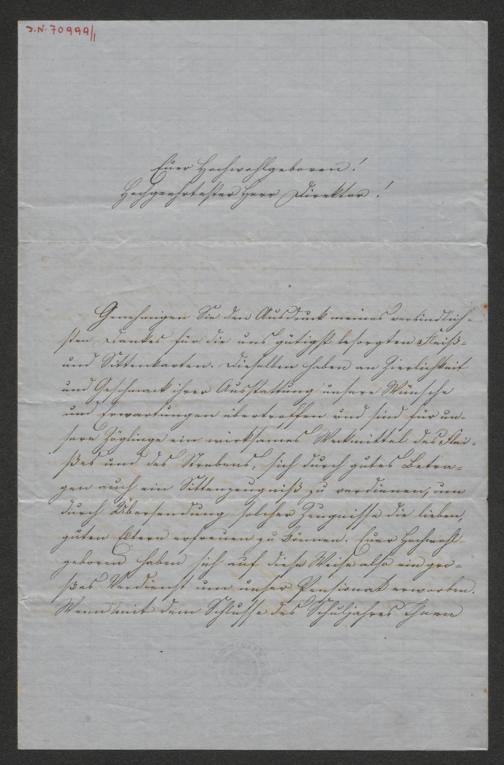 J.N. 70999/1
Euer Hochwohlgeboren!
Hochgeehrtester Herr Direktor!
Genehmigen Sie den Ausdruck meines verbindlich-
sten Dankes für die uns gütigst besorgten Fleiß-
und Sittenkarten. Dieselben haben an Zierlichkeit
und Geschmack ihrer Ausstattung unsere Wünsche
und Erwartungen übertroffen und sind für un-
sere Zöglinge ein wirksames Weckmittel des Flei-
ßes und des Strebens, sich durch gutes Betra-
gen auch ein Sittenzeugniß zu verdienen, um
durch Übersendung solcher Zeugnisse die lieben,
guten Eltern erfreuen zu können. Euer Hochwohl-
geboren haben sich auf diese Weise also ein gro-
ßes Verdienst um unser Pensionat erworben.
Wenn mit dem Schlusse des Schuljahres ihnen